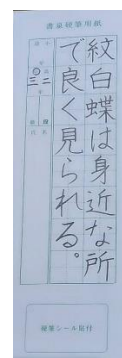 書童硬筆用紙
紋白蝶は身近な所
で良く見られる。
三 二
年
氏名
硬筆シール貼付